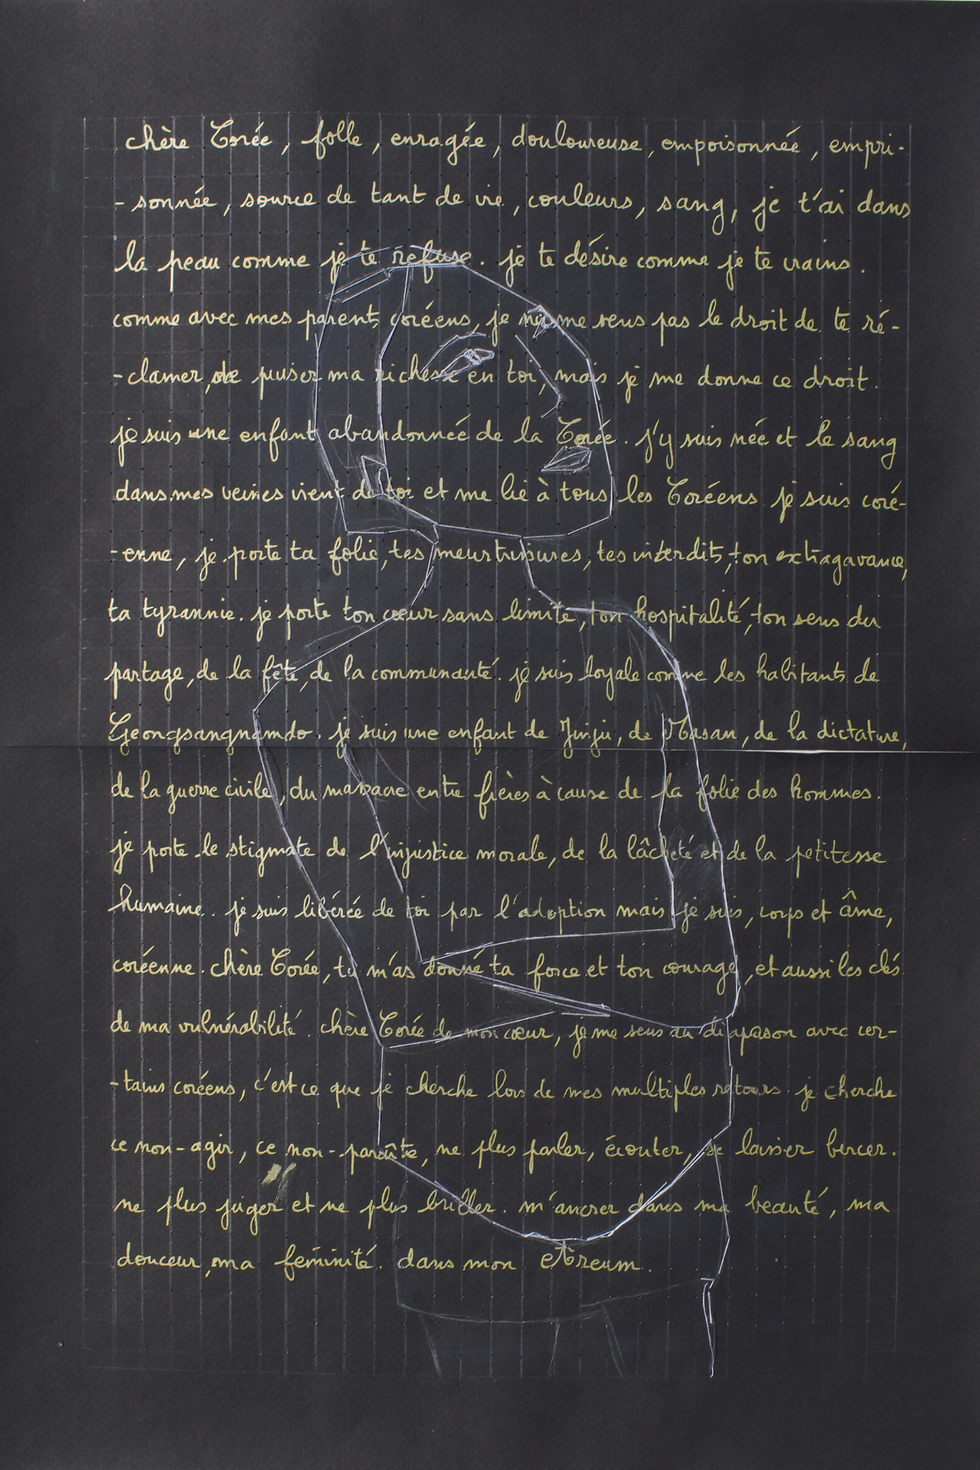 chère Corée, folle, enragée, douloureuse, empoisonnée, empri-
-sonnée, source de tant de vie, couleurs, sang, je t'ai dans
la peau comme je te refuse. je te désire comme je te crains.
comme avec mes parents coréens, je ne me sens pas le droit de te ré-
-clamer, de puiser ma richesse en toi, mais je me donne ce droit.
je suis une enfant abandonnée de la Corée. j'y suis née et le sang
dans mes veines vient de toi et me lie à tous les Coréens je suis coré-
-enne, je porte ta folie, tes meurtrissures, tes interdits, ton extragavance,
ta tyrannie. je porte ton cœur sans limite, ton hospitalité, ton sens du
partage, de la fête, de la communauté. je suis loyale comme les habitants de
Gyeongsangnamdo. je suis une enfant de Jinju, de Masan, de la dictature,
de la guerre civile, du massacre entre frères à cause de la folie des hommes.
je porte le stigmate de l'injustice morale, de la lâcheté et de la petitesse
humaine. je suis libérée de toi par l'adoption mais je suis, corps et âme,
coréenne. chère Corée, tu m'as donné ta force et ton courage, et aussi les clés
de ma vulnérabilité. chère Corée de mon cœur, je me sens au diapason avec cer-
-tains coréens, c'est ce que je cherche lors de mes multiples retours. je cherche
ce non-agir, ce non-paraître, ne plus parler, écouter, se laisser bercer.
ne plus juger et ne plus briller. m'ancrer dans ma beauté, ma
douceur, ma féminité. dans mon Areum.